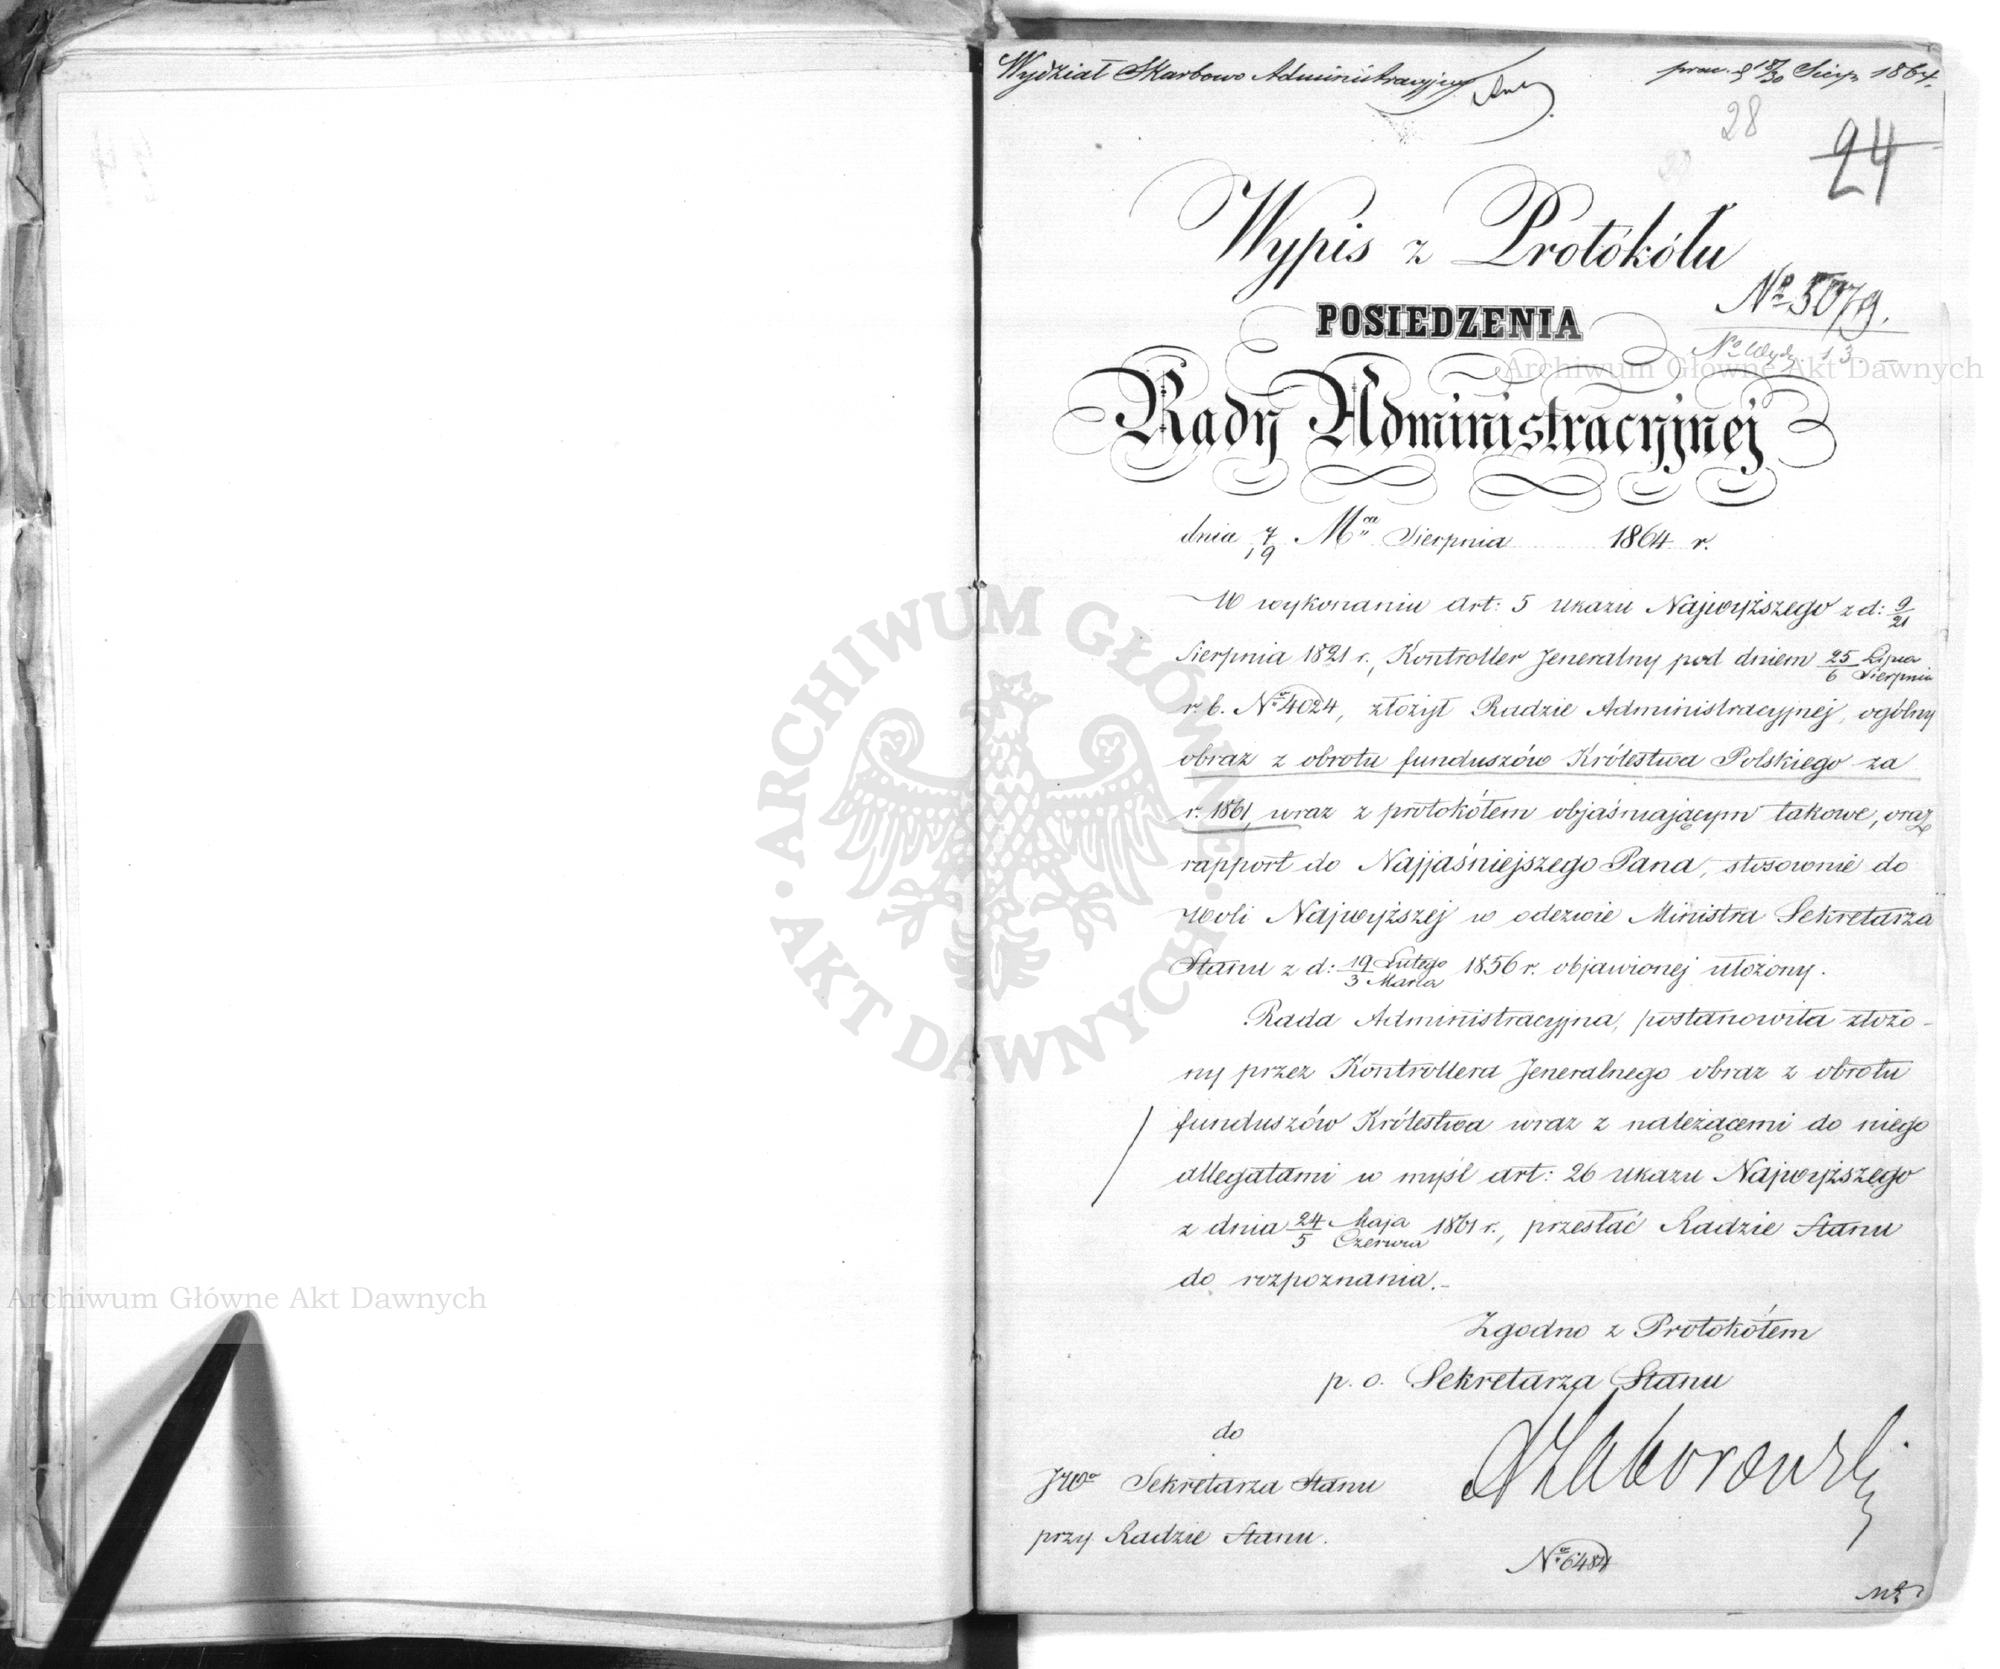 Wydział Skarbowo Administracyjny
18/30 Sierp. 1864.
28
24
Wypis z Protokółu
No 5079.
POSIEDZENIA
No Wydz. 13
Rady Administracyjnej
dnia 7/19 Mca Sierpnia 1864 r.
W wykonaniu art: 5 Ukazu Najwyższego z d: 9/21
Sierpnia 1821 r., Kontroller Jeneralny pod dniem 25 Lipca/6 Sierpnia
r. b. No 4024, złożył Radzie Administracyjnej, ogólny
obraz z obrotu funduszów Królestwa Polskiego za
r. 1861, wraz z protokółem objaśniającym takowe, oraz
rapport do Najjaśniejszego Pana, stosownie do
Woli Najwyższej w odezwie Ministra Sekretarza
Stanu z d: 19 Lutego/3 Marca 1856 r. objawionej ułożony.
Rada Administracyjna, postanowiła złożo-
ny przez Kontrollera Jeneralnego obraz z obrotu
funduszów Królestwa wraz z należącemi do niego
allegatami w myśl art: 26 Ukazu Najwyższego
z dnia 24 Maja/5 Czerwca 1861 r., przesłać Radzie Stanu
do rozpoznania.-
Zgodno z Protokółem
p. o. Sekretarza Stanu
AZaborowski
do
JWo Sekretarza Stanu
przy Radzie Stanu.
No 6484
Archiwum Główne Akt Dawnych
Archiwum Główne Akt Dawnych
ARCHIWUM GŁÓWNE AKT DAWNYCH